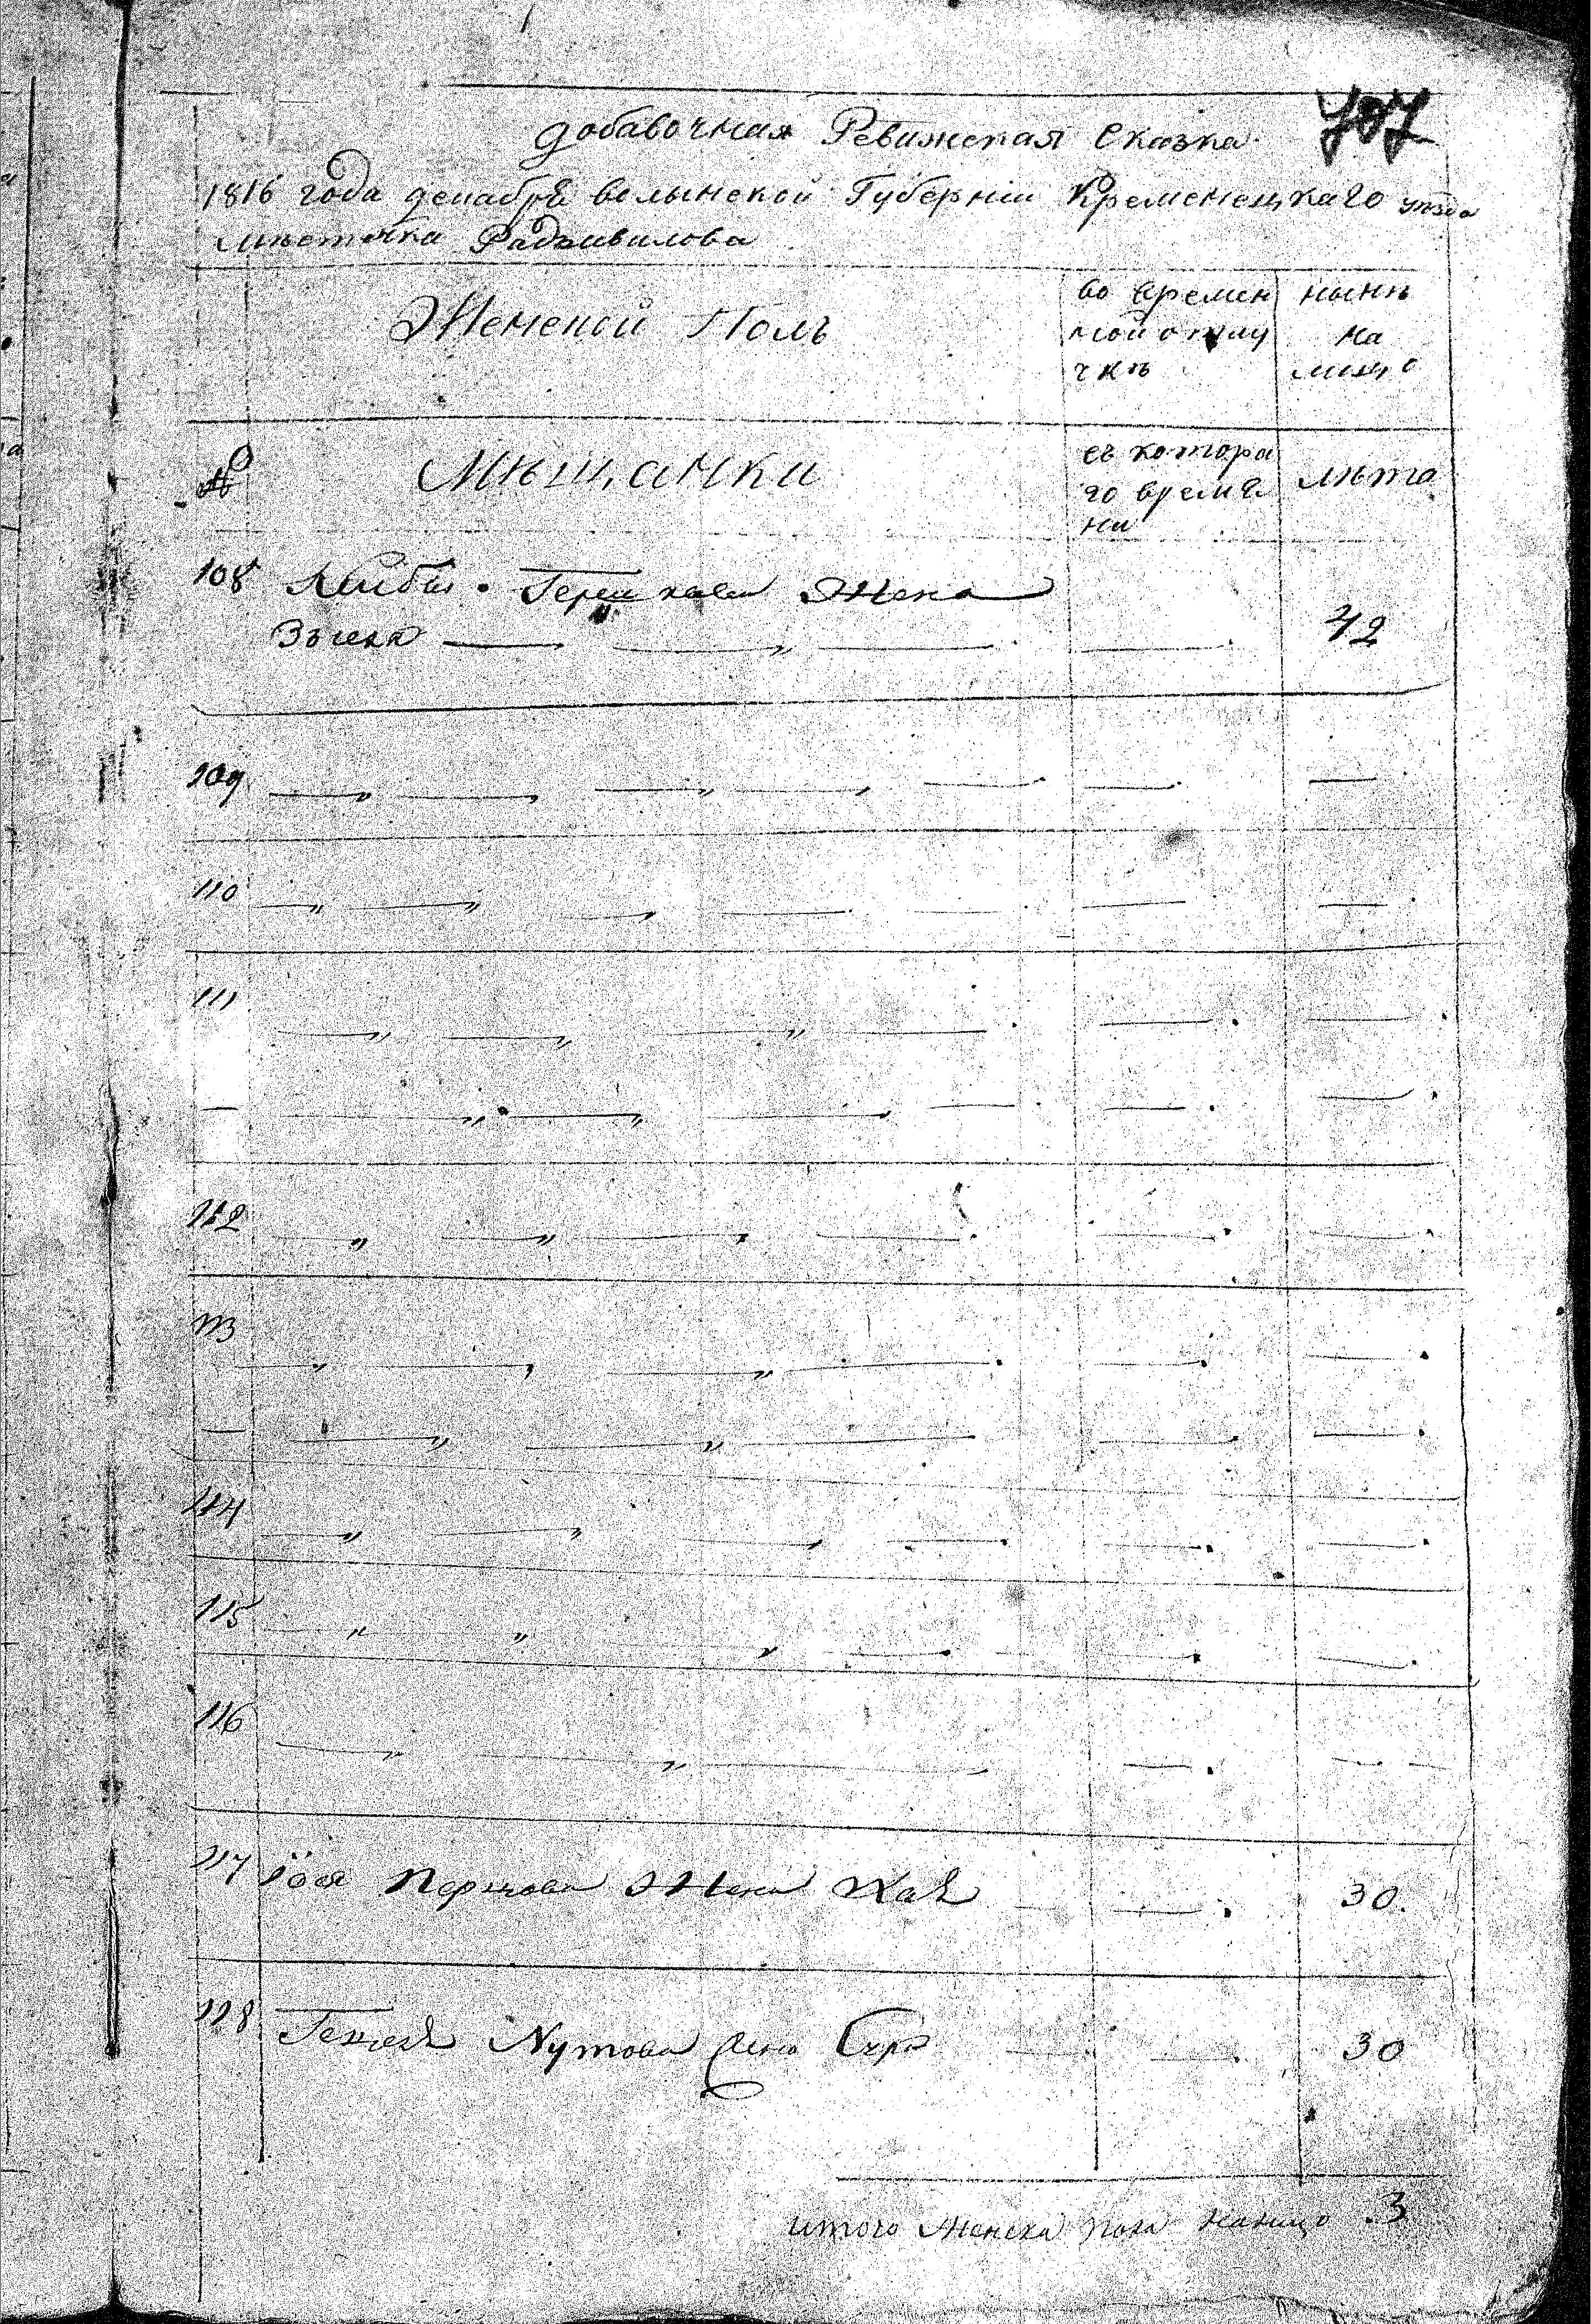 707
добавочная Ревижская Сказка
1816 года декабря волынской Губерніи Кременецкаго уѣзда
мѣстечка Радзивилова
Женской Полъ
во времен
ной отлу
чкѣ
нынѣ
на
лицо
№
Мѣщанки
съ котора
го време
ни
лѣта
108 Лейбы Гершкова Жена
42
109
110
111
112
113
114
115
116
117 Іося Жена Хая 30.
118 Нутова жена 30
итого Женска пола налицо 3